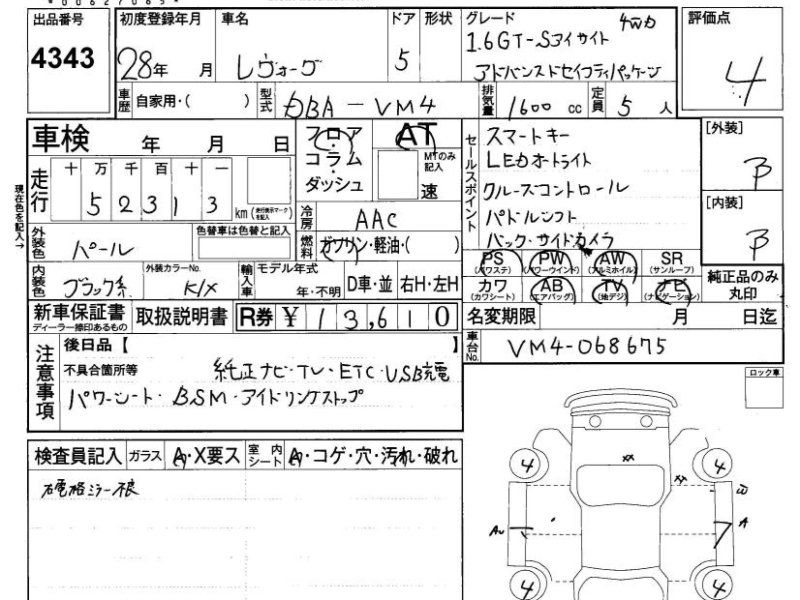 出品番号 初度登録年月 車名 ドア 形状 グレード 4WD 評価点
4343 28年 月 レヴォーグ 5 1.6GT-Sアイサイト 4
アドバンスドセイフティパッケージ
車歴 自家用・( ) 型式 DBA-VM4 排気量 1600 cc 定員 5 人
車検 年 月 日 フロア コラム・ダッシュ AT MTのみ記入 速
現在色を記入→
走行 十 万 千 百 十 一
5 2 3 1 3 km (走行表示マークを記入)
冷房 AAC
外装色 パール 色替車は色替と記入 燃料 ガソリン・軽油・( )
内装色 ブラック系 外装カラーNo. K1X 輸入車 モデル年式 年・不明 D車・並 右H・左H
セールスポイント
スマートキー
LEDオートライト
クルーズコントロール
パドルシフト
バック・サイドカメラ
[外装] B
[内装] B
PS (パワステ) PW (パワーウインド) AW (アルミホイル) SR (サンルーフ)
カワ (カワシート) AB (エアバッグ) TV (地デジ) ナビ (ナビゲーション)
純正品のみ丸印
新車保証書 ディーラー捺印あるもの 取扱説明書 R券 ¥ 13,610 名変期限 月 日迄
車台No. VM4-068675
注意事項
後日品【 】
不具合箇所等 純正ナビ・TV・ETC・USB充電
パワーシート・BSM・アイドリングストップ
ロック車
検査員記入 ガラス A・X要ス 室内シート A・コゲ・穴・汚れ・破れ
電格ミラー不良
XX
XX
4 4
W
A
4 4